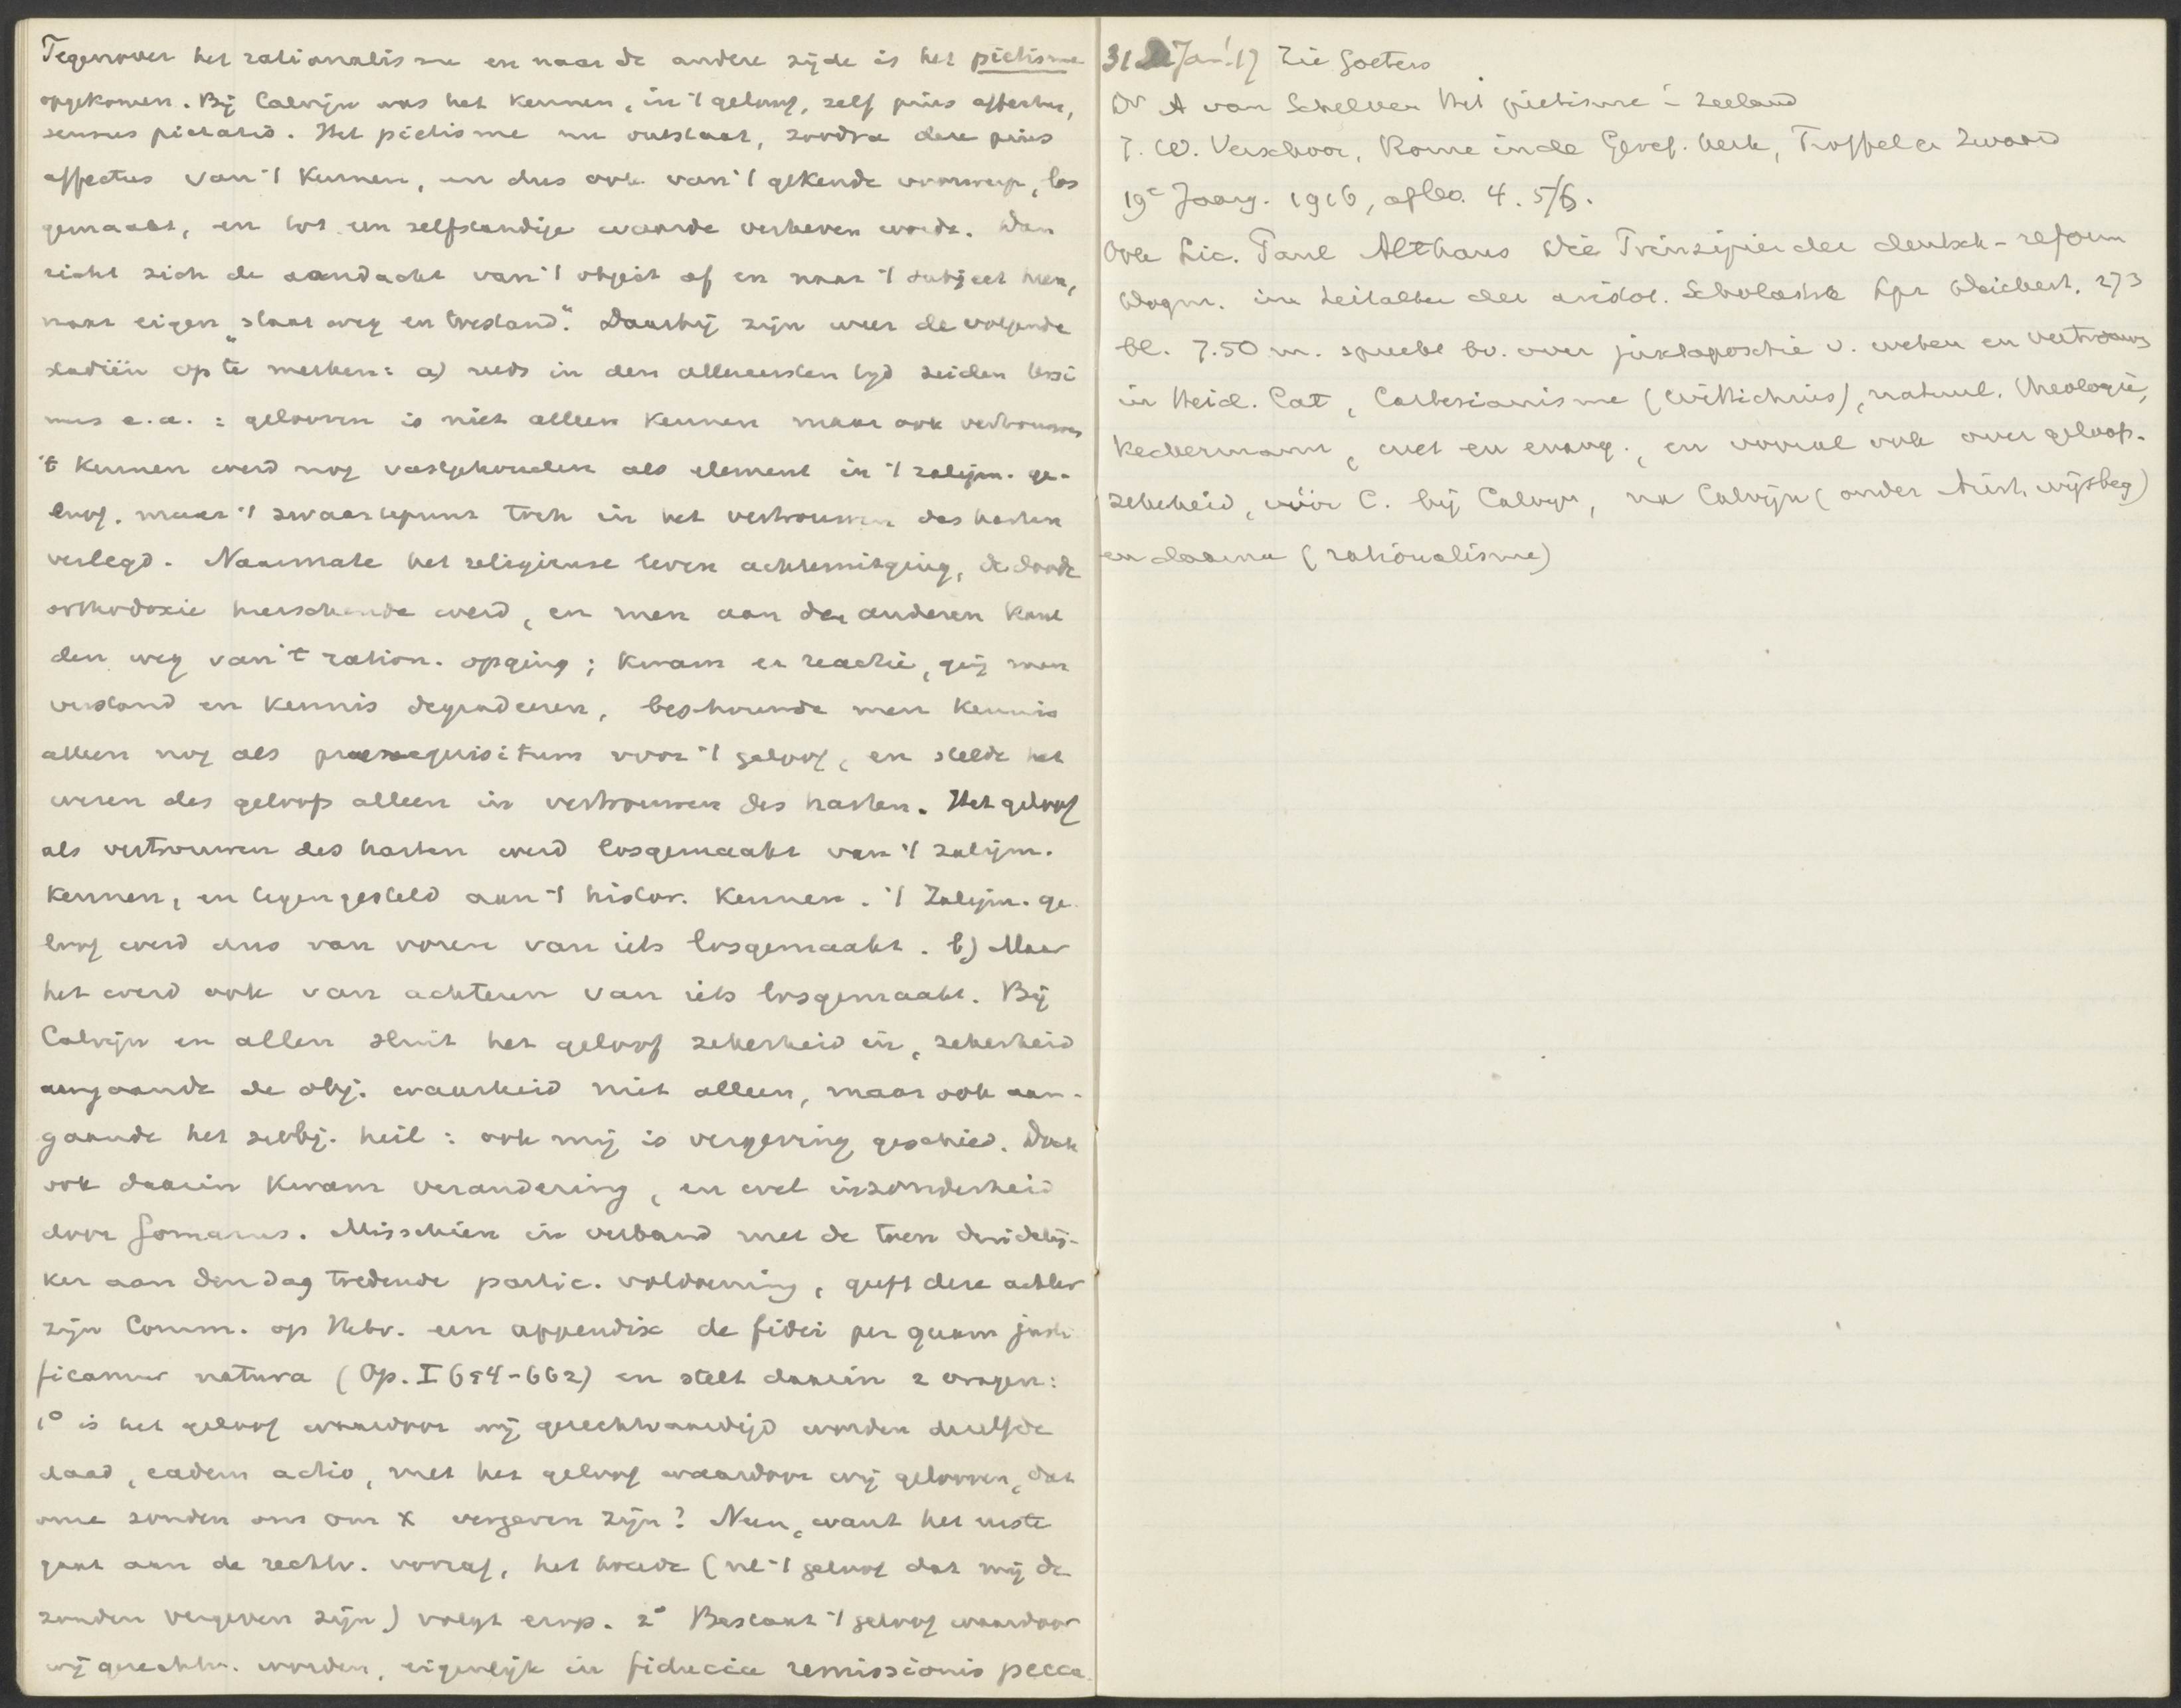 Tegenover het rationalisme en naar de andere zijde is het pietisme
opgekomen. Bij Calvijn was het kennen, in 't geloof, zelf pius affectus,
sensus pietatis. Het piëtisme nu ontstaat, zoodra deze pius
affectus van 't kennen, en dus ook van 't gekende voorwerp, los
gemaakt, en tot een zelfstandige waarde verheven wordt. Dan
richt zich de aandacht van 't object af en naar 't subject heen,
naar eigen "staat weg en toestand". Daarbij zijn weer de volgende
stadiën op te merken: a) reeds in den allereersten tijd zeiden Ursi
nus e.a.: gelooven is niet alleen kennen maar ook vertrouwen
't kennen werd nog vastgehouden als element in 't zaligm. ge-
loof. maar 't zwaartepunt toch in het vertrouwen des harten
verlegd. Naarmate het religieuse leven achteruitging, de doode
orthodoxie heerschende werd, en men aan den anderen kant
den weg van 't ration. opging; kwam er reactie, ging men
verstand en kennis degradeeren, beschouwde men kennis
alleen nog als praerequisitum voor 't geloof, en stelde het
wezen des geloofs alleen in vertrouwen des harten. Het geloof
als vertrouwen des harten werd losgemaakt van 't zaligm.
kennen, en tegengesteld aan 't histor. kennen. 't Zaligm. ge
loof werd dus van voren van iets losgemaakt. b) Maar
het werd ook van achteren van iets losgemaakt. Bij
Calvijn en allen sluit het geloof zekerheid in, zekerheid
aangaande de obj. waarheid niet alleen, maar ook aan-
gaande het subj. heil: ook mij is vergeving geschied. Doch
ook daarin kwam verandering, en wel inzonderheid
door Gomarus. Misschien in verband met de toen duidelij-
ker aan den dag tredende partic. voldoening, geeft deze achter
zijn Comm. op Hebr. een appendix de fidei per quam justi
ficamur natura (Op. I 654-662) en stelt daarin 2 vragen:
1° is het geloof waardoor wij gerechtvaardigd worden dezelfde
daad, eadem actio, met het geloof waardoor wij gelooven, dat
onze zonden ons om X vergeven zijn? Neen, want het eerste
gaat aan de rechtv. vooraf, het tweede (nl 't geloof dat mij de
zonden vergeven zijn) volgt erop. 2° Bestaat 't geloof waardoor
wij gerechtv. worden, eigenlijk in fiducia remissionis pecca
31 Jan '17 Zie Goeters
Dr A van Schelven Het pietisme i Zeeland
J. W. Verschoor, Rome in de Geref. kerk, Troffel en Zwaard
19e Jaarg. 1916, aflev. 4. 5/6.
Ook Lic. Paul Althaus Die Prinzipien der deutsch-reform
Dogm. im Zeitalter der aristot. Scholastik Lpz Deichert. 273
bl. 7.50 m. spreekt bv. over juxtapositie v. weten en vertrouwen
in Heid. Cat, Cartesianisme (Wittichius), natuurl. theologie,
Keckermann, wet en evang., en vooral ook over geloofs-
zekerheid, vóór C. bij Calvijn, na Calvijn (onder Arist. wijsbeg)
en daarna (rationalisme)